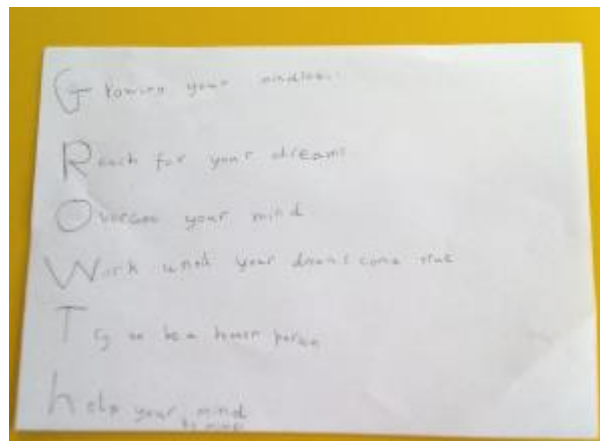 Growing your mindset
Reach for your dreams
Overcome your mind
Work untill your dreams come true
Try to be a better person
help your mind